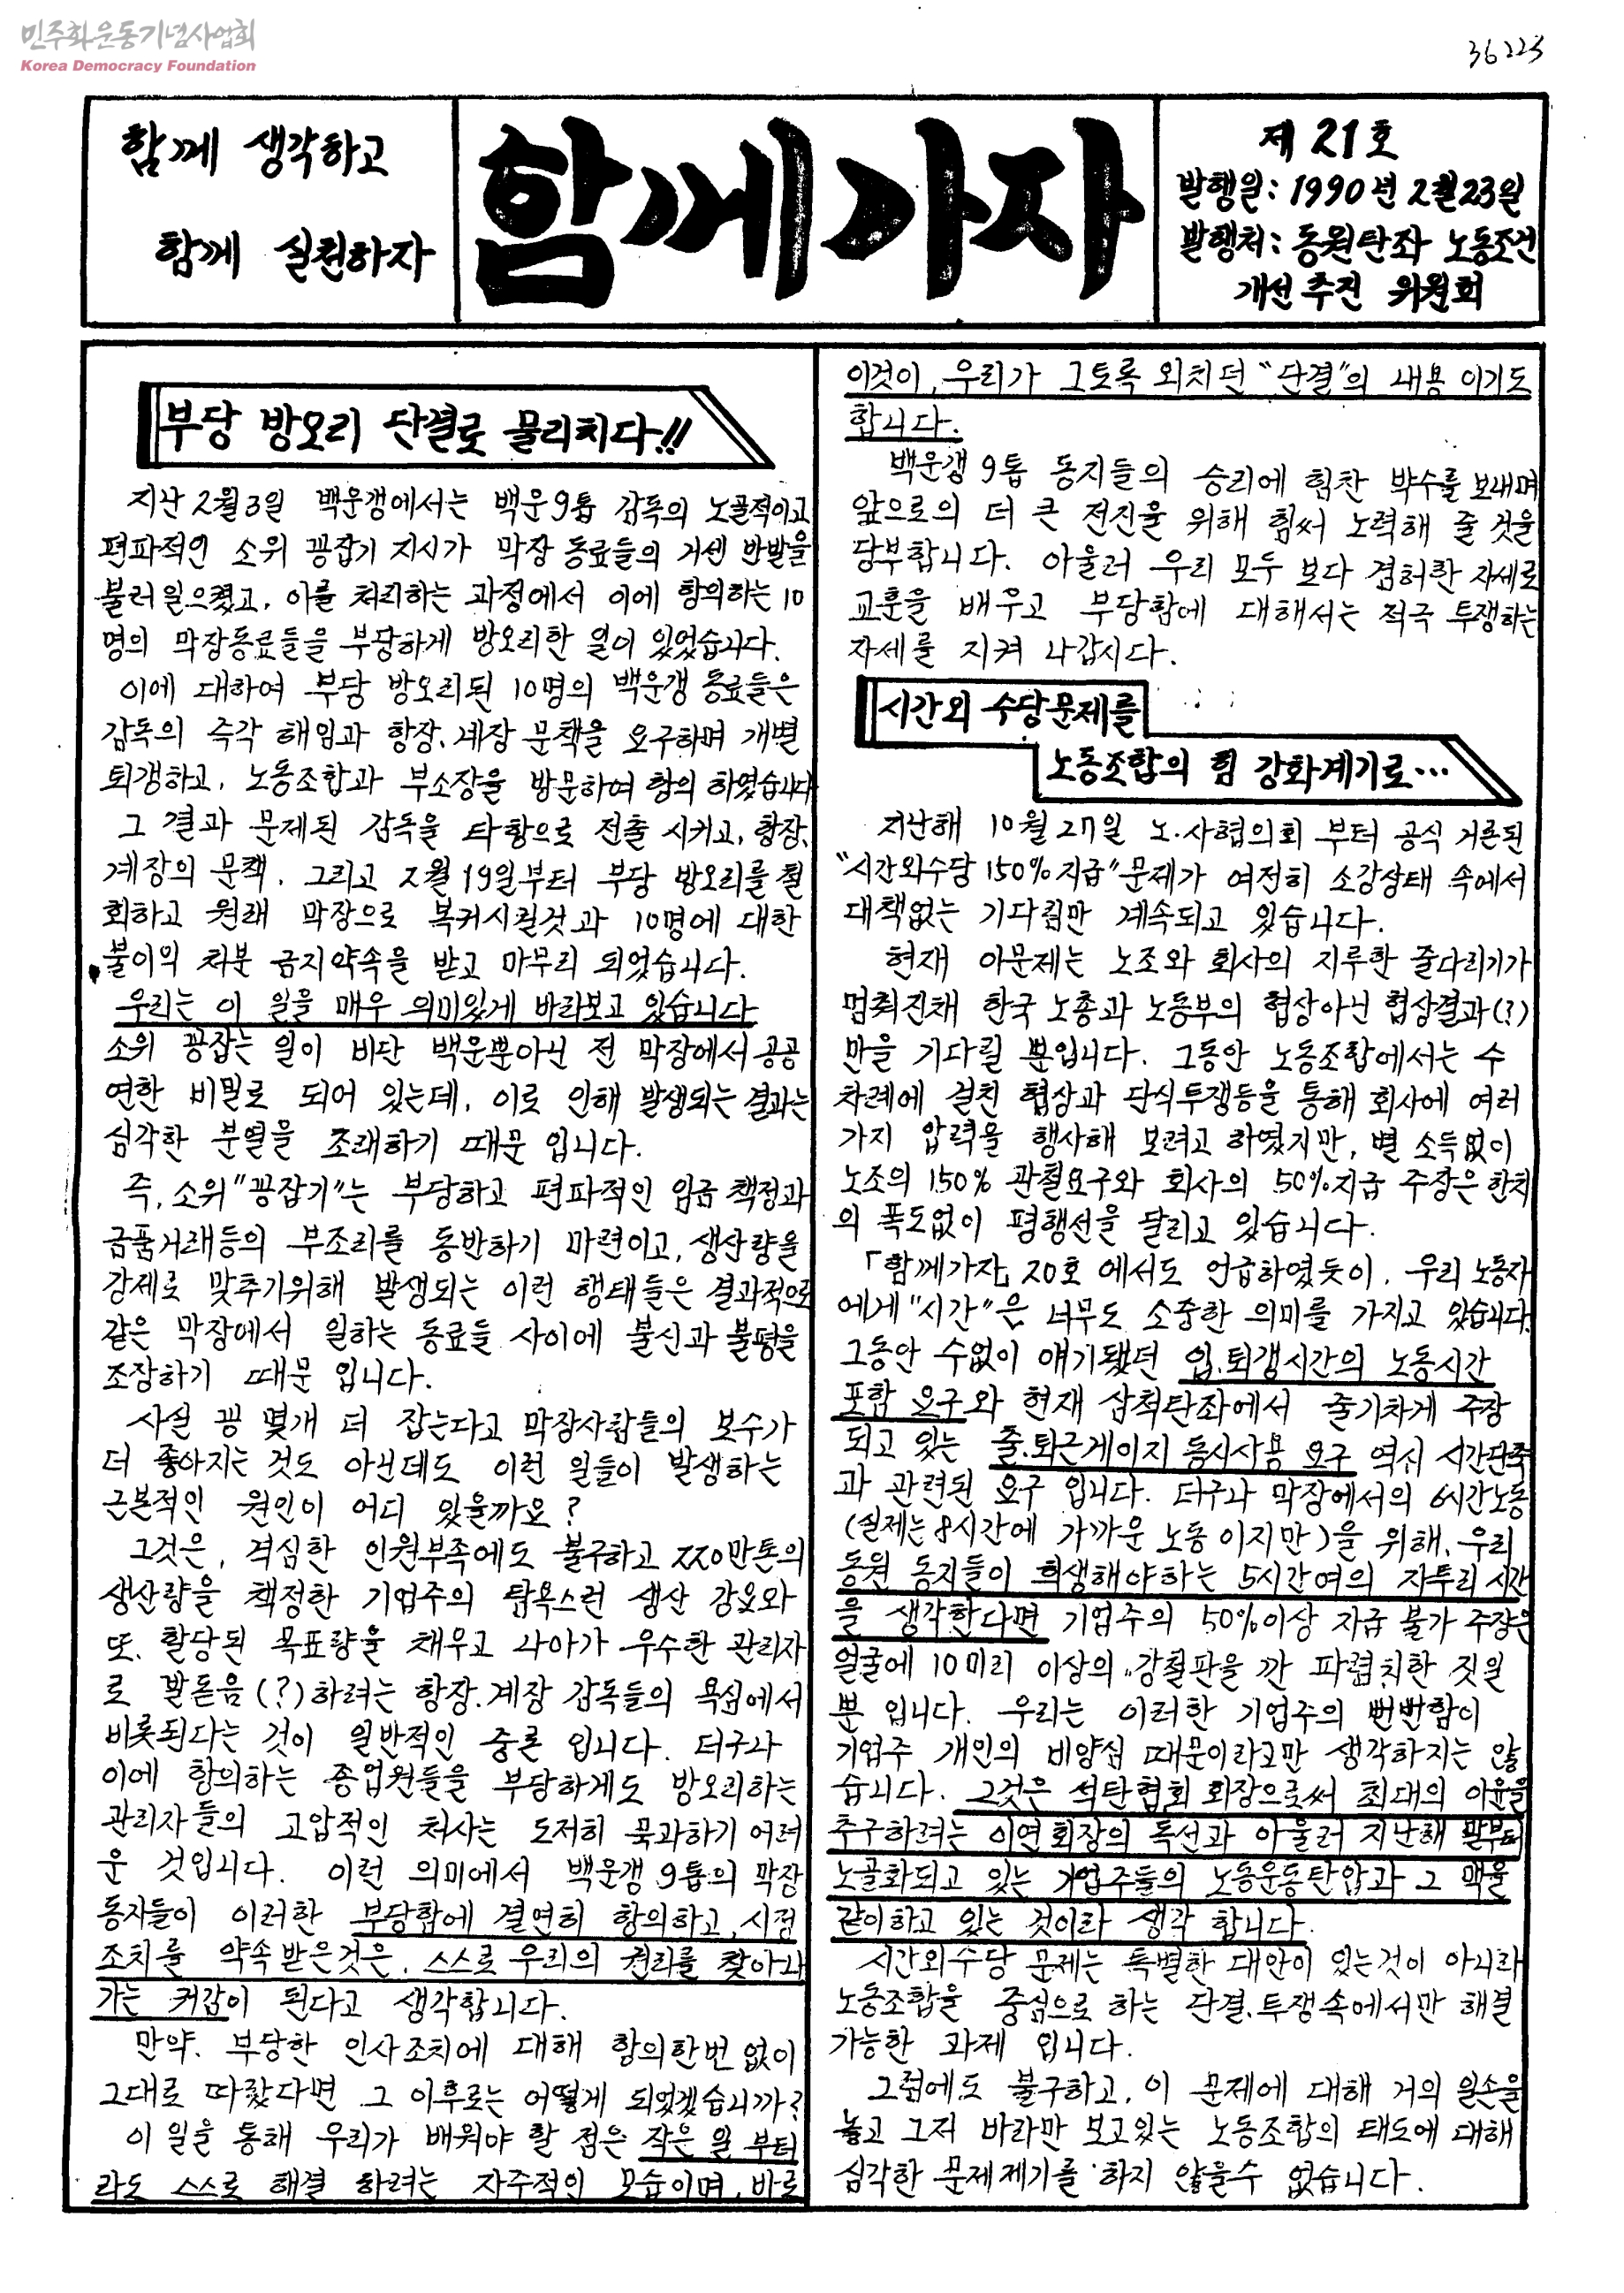 민주화운동기념사업회
Korea Democracy Foundation
36223
함께 생각하고
함께 실천하자
함께가자
제 21호
발행일: 1990년 2월23일
발행처: 동원탄좌 노동조건
개선추진 위원회
부당 방오리 단결로 물리치다!!
지난 2월3일 백운갱에서는 백운9톱 감독의 노골적이고
편파적인 소위 꽝잡기 지시가 막장 동료들의 거센 반발을
불러 일으켰고, 이를 처리하는 과정에서 이에 항의하는 10
명의 막장동료들을 부당하게 방오리한 일이 있었습니다.
이에 대하여 부당 방오리된 10명의 백운갱 동료들은
감독의 즉각 해임과 항장, 계장 문책을 요구하며 개별
퇴갱하고, 노동조합과 부소장을 방문하여 항의 하였습니다
그 결과 문제된 감독을 타항으로 전출 시키고, 항장,
계장의 문책, 그리고 2월 19일부터 부당 방오리를 철
회하고 원래 막장으로 복커시킬것과 10명에 대한
불이익 처분 금지약속을 받고 마무리 되었습니다.
우리는 이 일을 매우 의미있게 바라보고 있습니다
소위 꽝잡는 일이 비단 백운뿐아닌 전 막장에서 공공
연한 비밀로 되어 있는데, 이로 인해 발생되는 결과는
심각한 분열을 초래하기 때문 입니다.
즉, 소위 "꽝잡기"는 부당하고 편파적인 임금 책정과
금품거래등의 부조리를 동반하기 마련이고, 생산량을
강제로 맞추기위해 발생되는 이런 행태들은 결과적으로
같은 막장에서 일하는 동료들 사이에 불신과 불평을
조장하기 때문 입니다.
사실 꽝 몇개 더 잡는다고 막장사람들의 보수가
더 좋아지는 것도 아닌데도 이런 일들이 발생하는
근본적인 원인이 어디 있을까요?
그것은, 격심한 인원부족에도 불구하고 220만톤의
생산량을 책정한 기업주의 탐욕스런 생산 강요와
또, 할당된 목표량을 채우고 나아가 우수한 관리자
로 발돋음(?)하려는 항장.계장 감독들의 욕심에서
비롯된다는 것이 일반적인 중론 입니다. 더구나
이에 항의하는 종업원들을 부당하게도 방오리하는
관리자들의 고압적인 처사는 도저히 묵과하기 어려
운 것입니다. 이런 의미에서 백운갱 9톱의 막장
동자들이 이러한 부당함에 결연히 항의하고, 시정
조치를 약속받은것은, 스스로 우리의 권리를 찾아나
가는 커감이 된다고 생각합니다.
만약, 부당한 인사조치에 대해 항의한번 없이
그대로 따랐다면 그 이후로는 어떻게 되었겠습니까?
이 일을 통해 우리가 배워야 할 점은 작은 일 부터
라도 스스로 해결 하려는 자주적인 모습이며, 바로
이것이, 우리가 그토록 외치던 "단결"의 내용 이기도
합니다.
백운갱 9톱 동지들의 승리에 힘찬 박수를 보내며
앞으로의 더 큰 전진을 위해 힘써 노력해 줄 것을
당부합니다. 아울러 우리 모두 보다 겸허한 자세로
교훈을 배우고 부당함에 대해서는 적극 투쟁하는
자세를 지켜 나갑시다.
시간외 수당문제를
노동조합의 힘 강화계기로…
지난해 10월 27일 노.사협의회 부터 공식 거론된
"시간외수당 150% 지급" 문제가 여전히 소강상태 속에서
대책없는 기다림만 계속되고 있습니다.
현재 이문제는 노조와 회사의 지루한 줄다리기가
멈춰진채 한국 노총과 노동부의 협상아닌 협상결과(?)
만을 기다릴 뿐입니다. 그동안 노동조합에서는 수
차례에 걸친 협상과 단식투쟁등을 통해 회사에 여러
가지 압력을 행사해 보려고 하였지만, 별 소득없이
노조의 150% 관철요구와 회사의 50%지급 주장은 한치
의 폭도없이 평행선을 달리고 있습니다.
「함께가자」 20호 에서도 언급하였듯이, 우리 노동자
에게 "시간"은 너무도 소중한 의미를 가지고 있습니다.
그동안 수없이 얘기됐던 입.퇴갱시간의 노동시간
포함 요구와 현재 삼척탄좌에서 줄기차게 주장
되고 있는 출.퇴근게이지 동시사용 요구 역시 시간단축
과 관련된 요구 입니다. 더구나 막장에서의 6시간노동
(실제는 8시간에 가까운 노동 이지만)을 위해, 우리
동원 동지들이 희생해야하는 5시간여의 자투리 시간
을 생각한다면 기업주의 50%이상 지급 불가 주장은
얼굴에 10미리 이상의 강철판을 깐 파렴치한 짓일
뿐 입니다. 우리는 이러한 기업주의 뻔뻔함이
기업주 개인의 비양심 때문이라고만 생각하지는 않
습니다. 그것은 석탄협회 회장으로써 최대의 이윤을
추구하려는 이연회장의 독선과 아울러 지난해 말부터
노골화되고 있는 기업주들의 노동운동탄압과 그 맥을
같이하고 있는 것이라 생각 합니다.
시간외수당 문제는 특별한 대안이 있는것이 아니라
노동조합을 중심으로 하는 단결.투쟁속에서만 해결
가능한 과제 입니다.
그럼에도 불구하고, 이 문제에 대해 거의 일손을
놓고 그저 바라만 보고있는 노동조합의 태도에 대해
심각한 문제제기를 하지 않을수 없습니다.